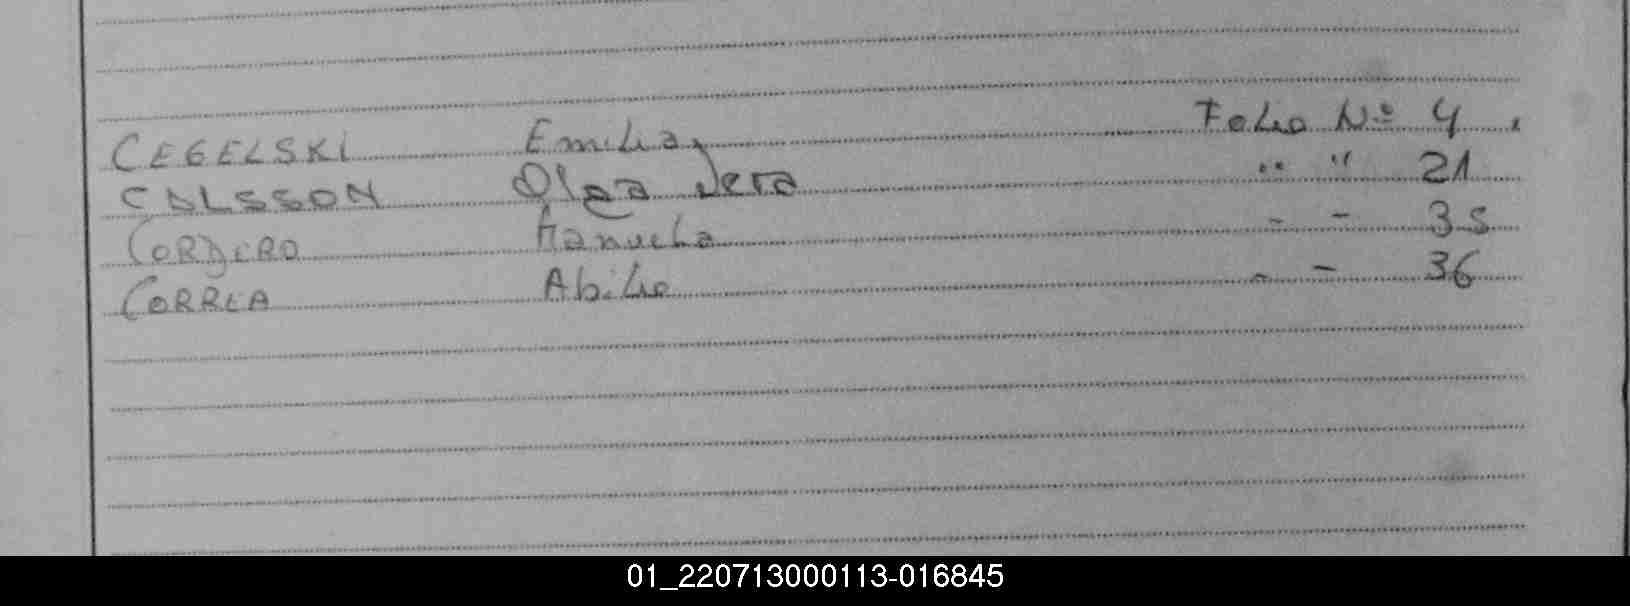 CEGELSKI Emilia, Folio Nº 4.
CALSSON Olga Vera " " 21
CORDERO Manuela - - 35
CORREA Abilio - - 36
01_220713000113-016845